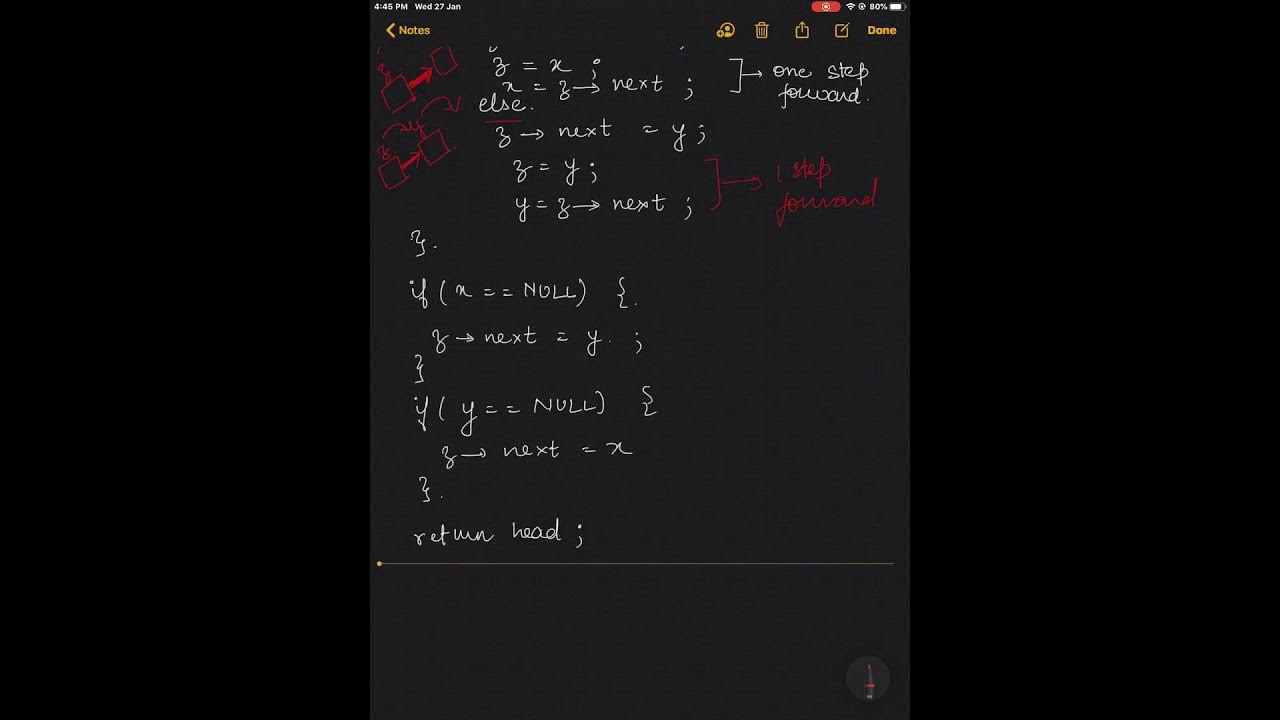 4:45 PM Wed 27 Jan 80%
Notes Done
z = x ;
x = z → next ; → one step forward.
else.
z → next = y ;
z = y ; → 1 step
y = z → next ; forward
}.
if ( x == NULL) {.
z → next = y. ;
}
if ( y == NULL) {
z → next = x
}.
return head ;
z
y
z